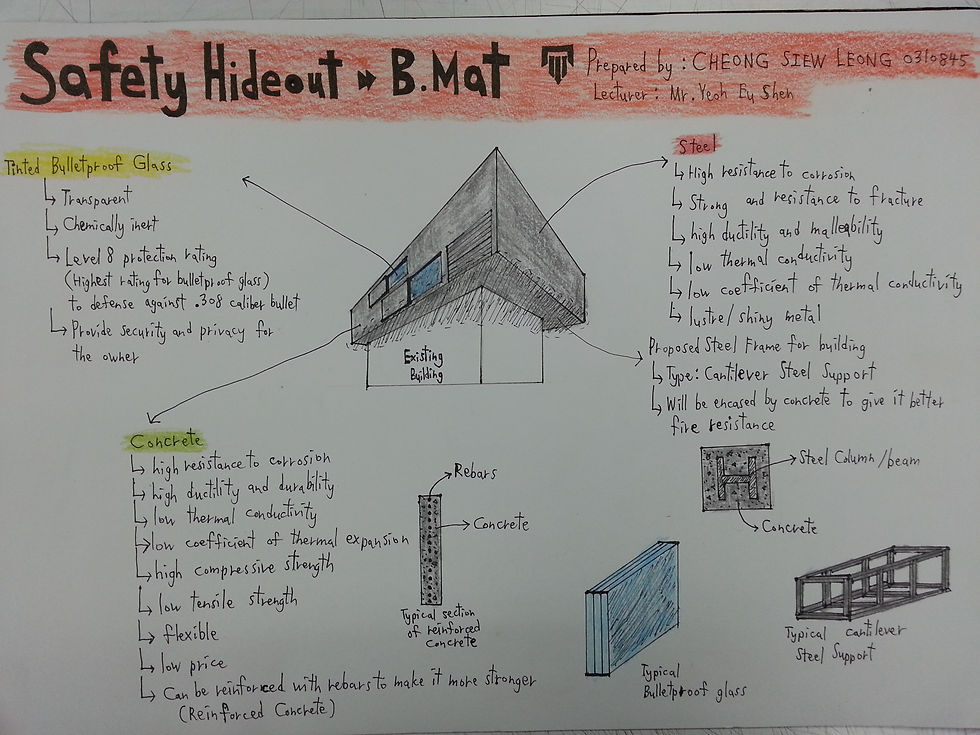 Safety Hideout ➳ B.Mat
Prepared by : CHEONG SIEW LEONG 0310845
Lecturer : Mr. Yeoh Ey Shen
Tinted Bulletproof Glass
↳ Transparent
↳ Chemically inert
↳ Level 8 protection rating
(Highest rating for bulletproof glass)
to defense against .308 caliber bullet
↳ Provide security and privacy for
the owner
Steel
↳ High resistance to corrosion
↳ Strong and resistance to fracture
↳ high ductility and malleability
↳ low thermal conductivity
↳ low coefficient of thermal conductivity
↳ lustre/shiny metal
Proposed Steel Frame for building
↳ Type: Cantilever Steel Support
↳ Will be encased by concrete to give it better
fire resistance
Existing
Building
Concrete
↳ high resistance to corrosion
↳ high ductility and durability
↳ low thermal conductivity
↳ low coefficient of thermal expansion
↳ high compressive strength
↳ low tensile strength
↳ flexible
↳ low price
↳ Can be reinforced with rebars to make it more stronger
(Reinforced Concrete)
Rebars
Concrete
Typical section
of reinforced
concrete
Steel Column/beam
Concrete
Typical
Bulletproof glass
Typical cantilever
Steel Support